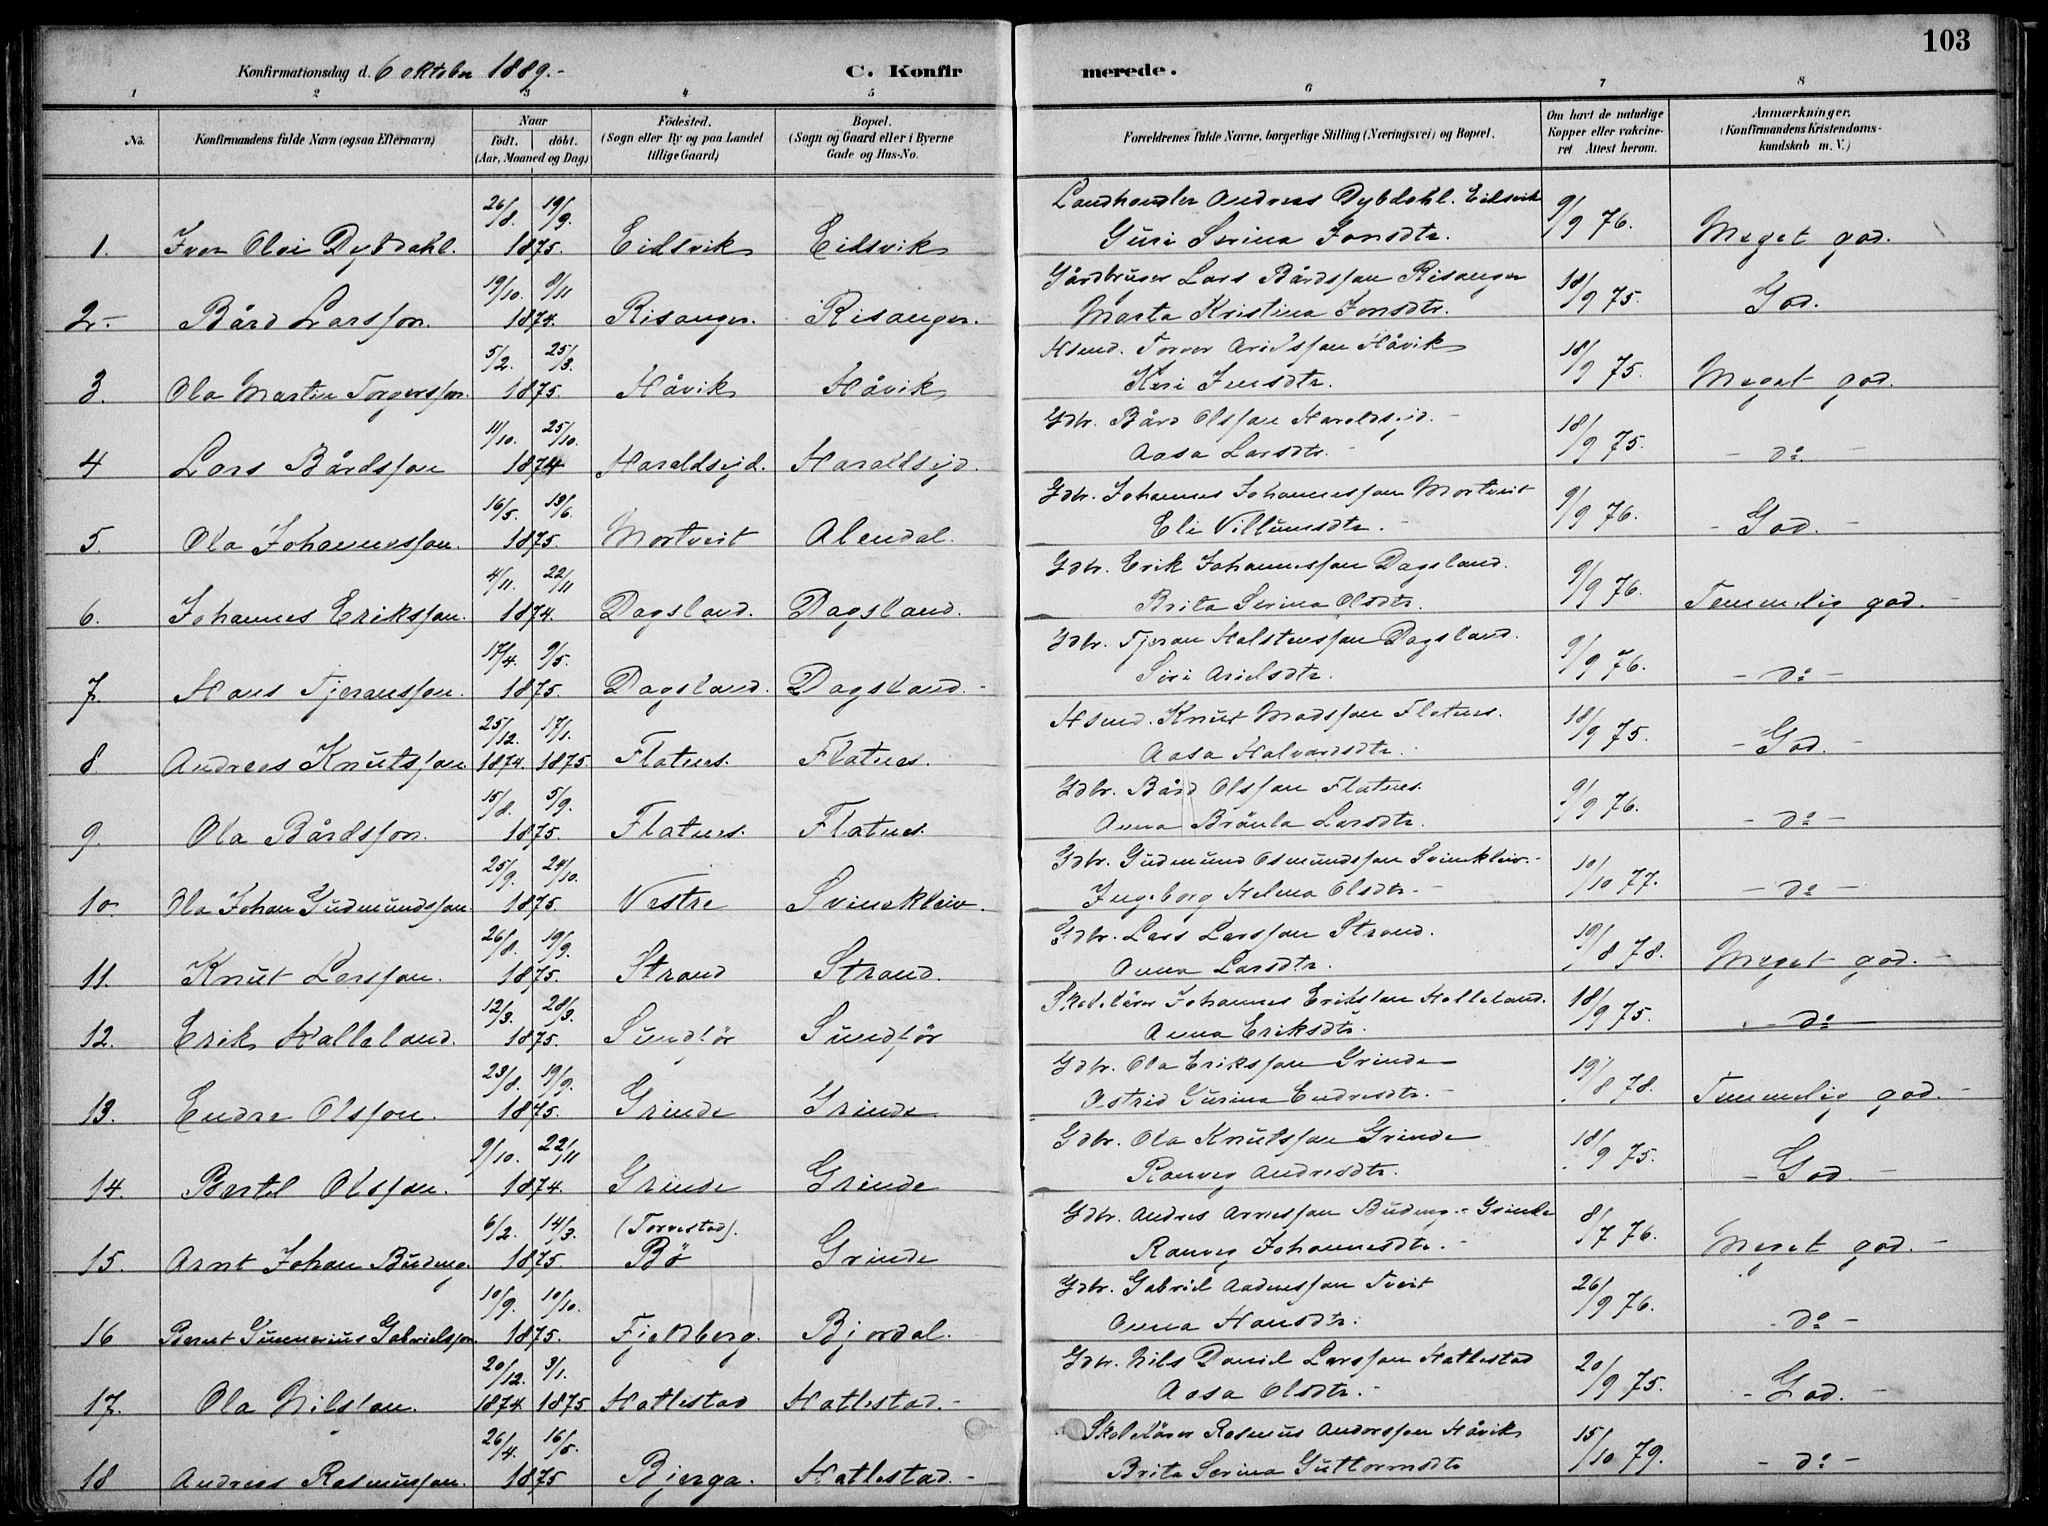 103
Konfirmationsdag d. 6 oktober 1889.-
C. Konfir merede.
1 2 3 4 5 6 7 8
No. Konfirmandens fulde Navn (ogsaa Efternavn) Naar født. døbt. (Aar, Maaned og Dag) Fødested. (Sogn eller By og paa Landet tillige Gaard) Bopæl. (Sogn og Gaard eller i Byerne Gade og Hus-No. Forældrenes fulde Navne, borgerlige Stilling (Næringsvei) og Bopæl. Om havt de naturlige Kopper eller vakcineret Attest herom. Anmærkninger. (Konfirmandens Kristendomskundskab m. V.)
26/8. 19/9. Landhandler Andreas Dybdahl. Eidsvik
1. Iver Olai Dybdahl. 1875. Eidsvik Eidsvik Guri Serina Jonsdtr. 9/9 76. Meget god.
19/10. 8/11 Gårdbruger Lars Bårdsson Risanger
2.- Bård Larsson. 1874. Risanger. Risanger. Marta Kristina Jonsdtr. 18/9 75. God.
5/2. 25/3. Hsmd. Torger Aridsson Håvik
3. Ola Martin Torgersson. 1875. Håvik Håvik Kari Jensdtr. 18/9 75. Meget god.
11/10. 25/10. Gdbr. Bård Olsson Haraldseid.
4 Lars Bårdsson 1874 Haraldseid. Haraldseid. Aasa Larsdtr. 18/9 75. - do. -
16/5. 13/6. Gdbr. Johannes Johannesson Mortveit
5. Ola Johannesson. 1875. Mortveit Alendal. Eli Villumsdtr. - 9/9 76. - God. -
4/11. 22/11 Gdbr. Erik Johannesson Dagsland.
6. Johannes Eriksson. 1874. Dagsland. Dagsland. Brita Serina Olsdtr. 9/9 76. Temmelig god. -
17/4. 9/5. Gdbr. Tjeran Halstensson Dagsland.
7. Hans Tjeransson. 1875. Dagsland. Dagsland.- Siri Aridsdtr. 9/9 76. - do -
25/12. 17/1. Hsmd. Knut Madsson Flatnes.
8 Andreas Knutsson. 1874. 1875. Flatnes. Flatnes. Aasa Halvardsdtr. 18/9 75. - God. -
15/8. 5/9. Gdbr. Bård Olsson Flatnes.
9. Ola Bårdsson. 1875. Flatnes. Flatnes. Anna Brønla Larsdtr. 9/9 76. - do -
25/9. 24/10. Gdbr. Gudmund Osmundsson Svinekleiv.-
10. Ola Johan Gudmundsson. 1875. Vestre Svinekleiv. Ingeborg Helena Olsdtr. - 10/10 77. - do -
26/8. 19/9. Gdbr. Lars Larsson Strand.
11. Knut Larsson. 1875. Strand Strand. Anna Larsdtr. 19/8 78. Meget god. -
12/3. 28/3. Skolelærer Johannes Eriksson Halleland.
12. Erik Halleland. 1875. Sundfør Sundfør Anna Eriksdtr. 18/9 75. - do
23/8. 19/9. Gdbr. Ola Eriksson Grinde
13. Endre Olsson. 1875. Grinde Grinde Astrid Gurina Endresdtr. - 19/8 78. Temmelig god. -
9/10. 22/11 Gdbr. Ola Knutsson Grinde
14. Bertel Olsson. 1874. Grinde Grinde Ranveg Andresdtr. 18/9 75. - God. -
6/2. 14/3. (Torvestad). Gdbr. Andres Arnesson Budeng.- Grinde
15. Arnt Johan Budeng. 1875. Bø Grinde Ranveg Johannesdtr. - 8/7 76. Meget god. -
10/9. 10/10. Gdbr. Gabriel Aadnesson Tveit
16 Bernt Gunnarius Gabrielsson 1875. Fjeldberg. Bjordal. Anna Hansdtr. 26/9 76. - do -
20/12. 3/1. Gdbr. Nils Daniel Larsson Hatlestad
17. Ola Nilsson. 1874 1875 Hatlestad Hatlestad.- Aasa Olsdtr. - 20/9 75. - God. -
26/4. 16/5. Skolelærer Rasmus Andersson Håvik
18 Andreas Rasmusson. 1875 Bjerga. Hatlestad. - Brita Serina Guttormsdtr 15/10 79. - do -